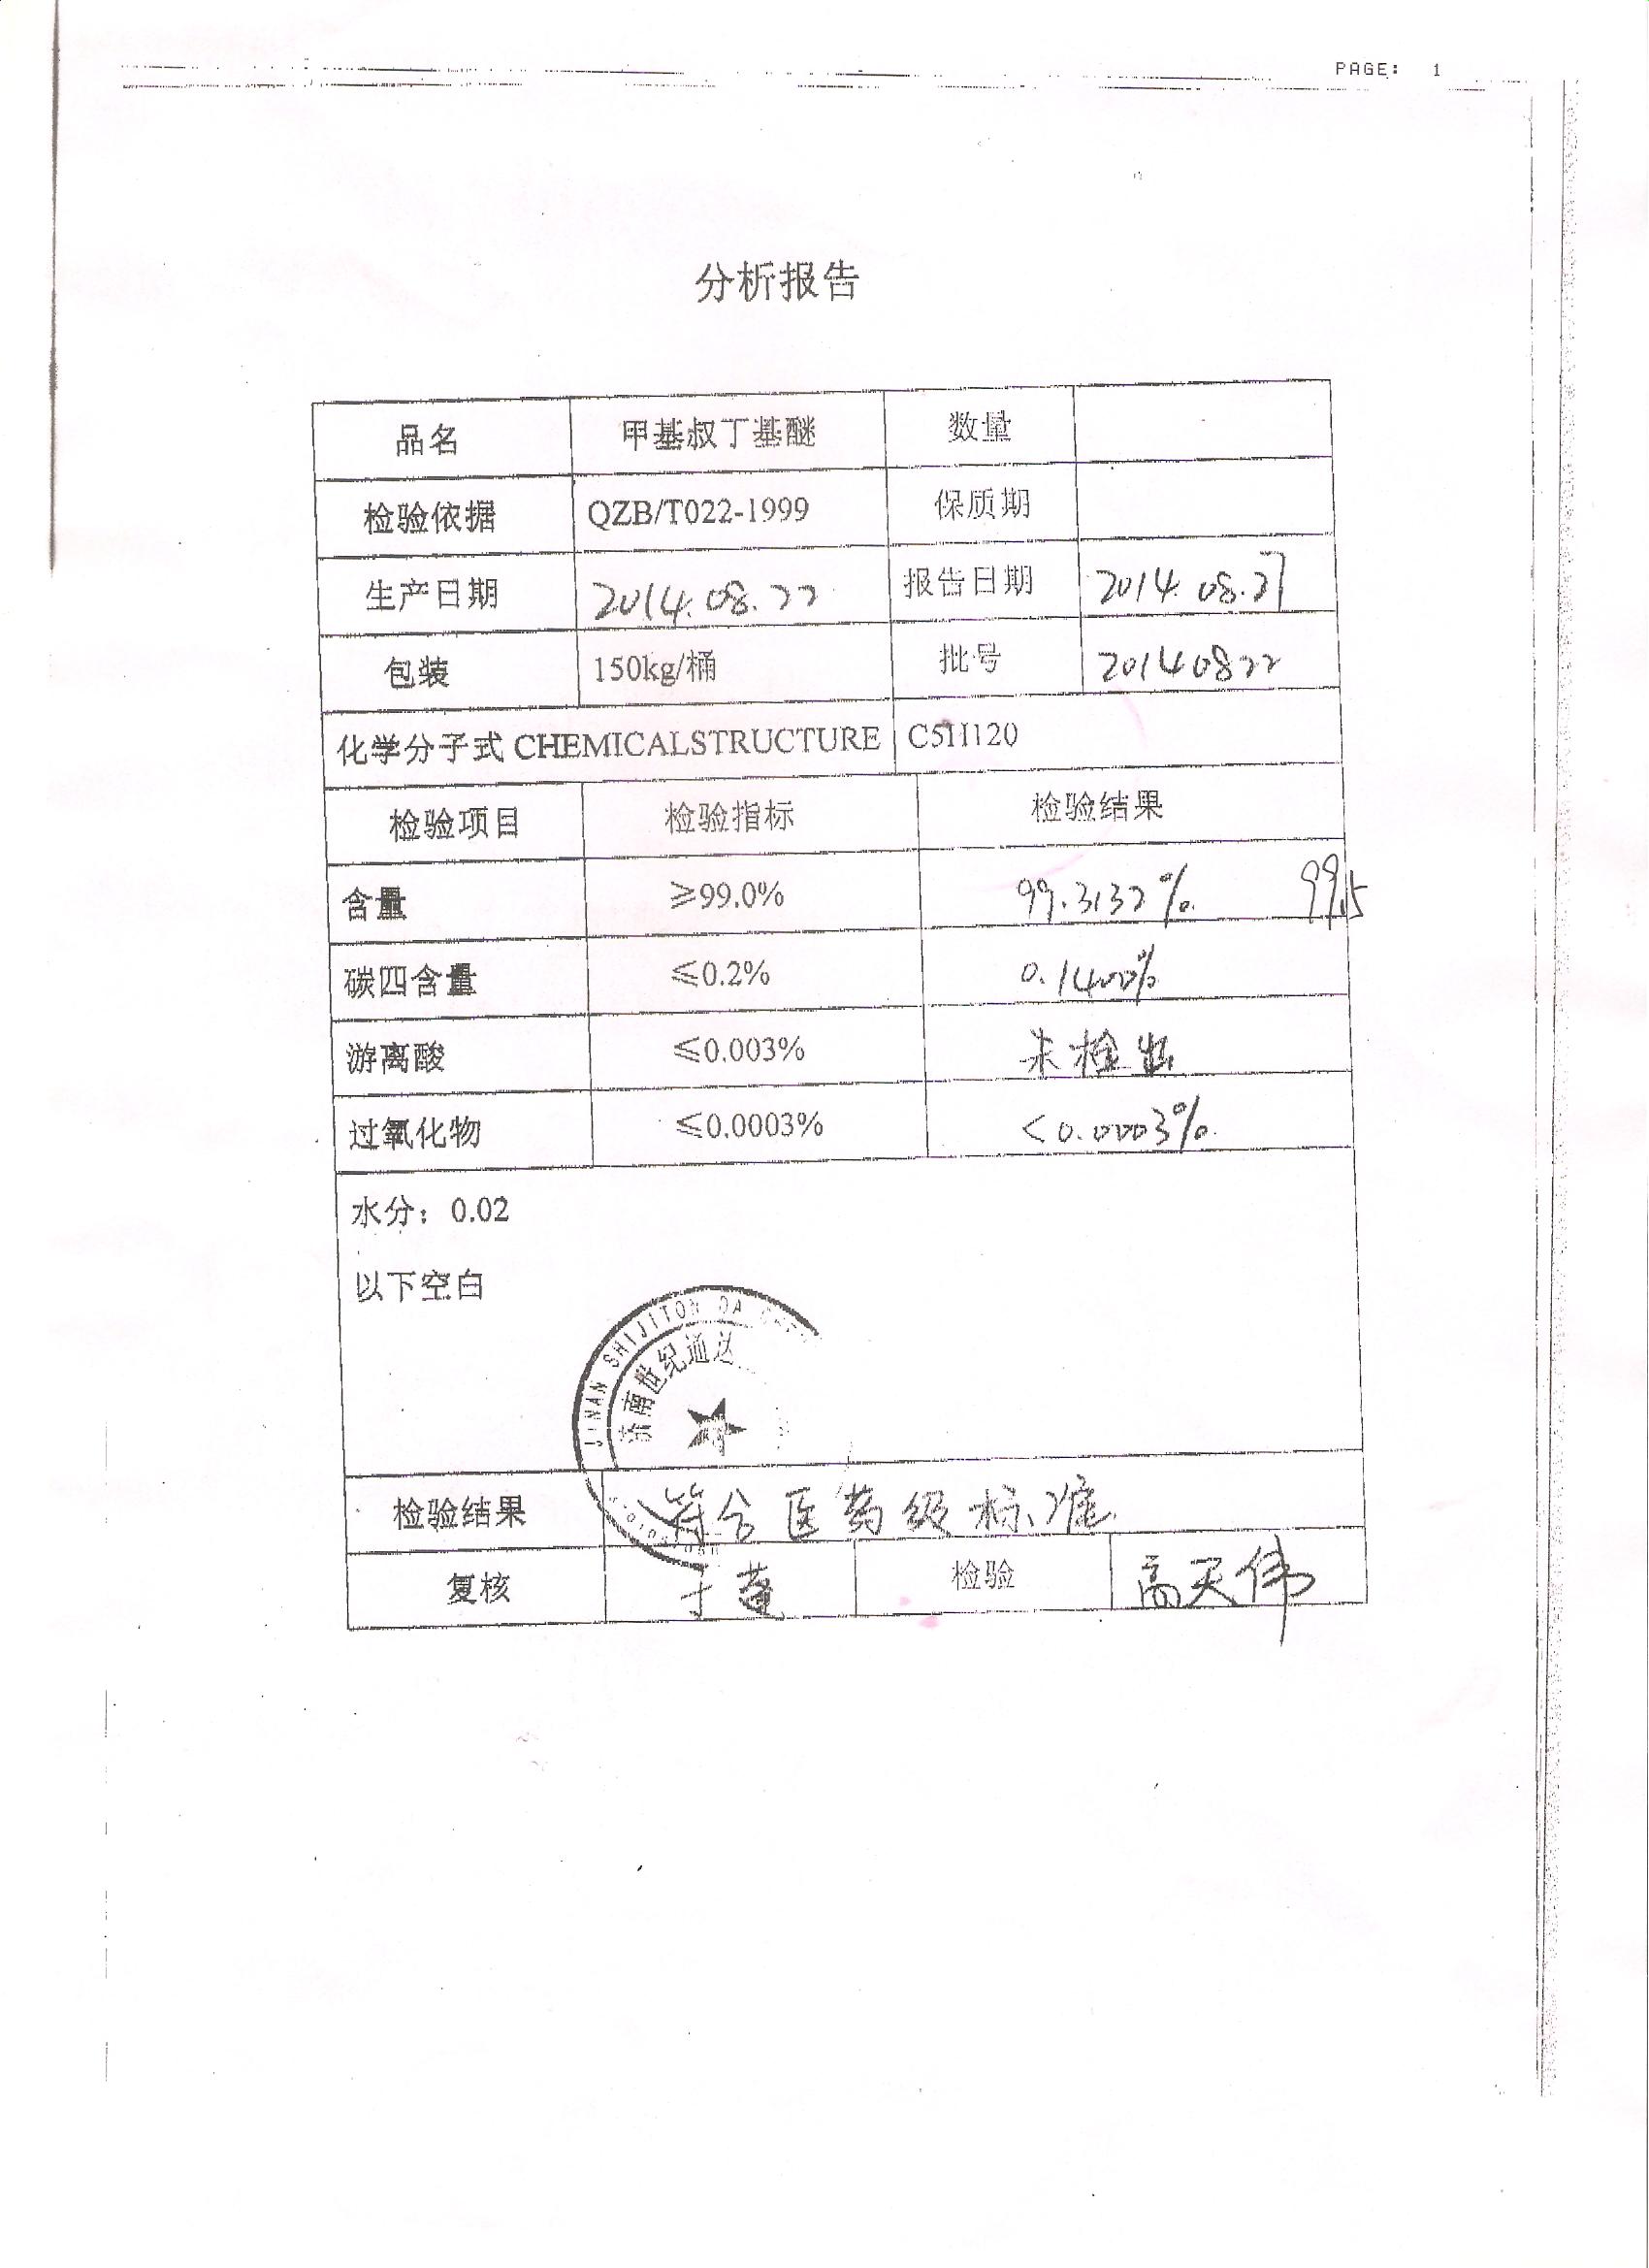 PAGE: 1
分析报告
品名 甲基叔丁基醚 数量
检验依据 QZB/T022-1999 保质期
生产日期 2014.08.22 报告日期 2014.08.27
包装 150kg/桶 批号 20140822
化学分子式 CHEMICALSTRUCTURE C5H12O
检验项目 检验指标 检验结果
含量 ≥99.0% 99.3132% 99.5
碳四含量 ≤0.2% 0.1400%
游离酸 ≤0.003% 未检出
过氧化物 ≤0.0003% <0.0003%
水分：0.02
以下空白
JINAN SHIJITON DA
济南世纪通达
检验结果 符合医药级标准
复核 检验 高天伟